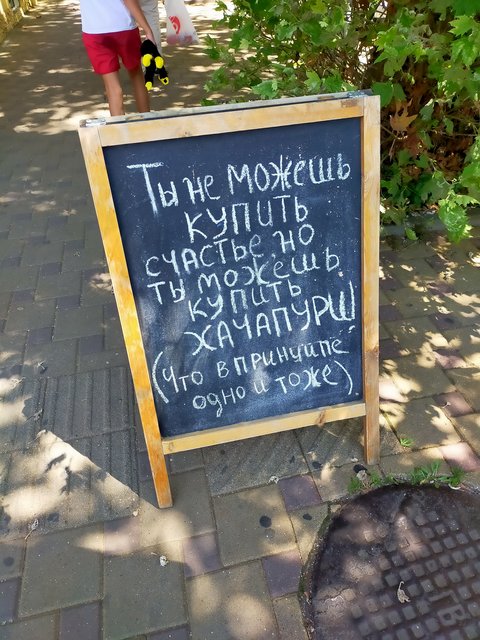 Ты не можешь
купить
счастье, но
ты можешь
купить
хачапури!
(что в принципе
одно и тоже)